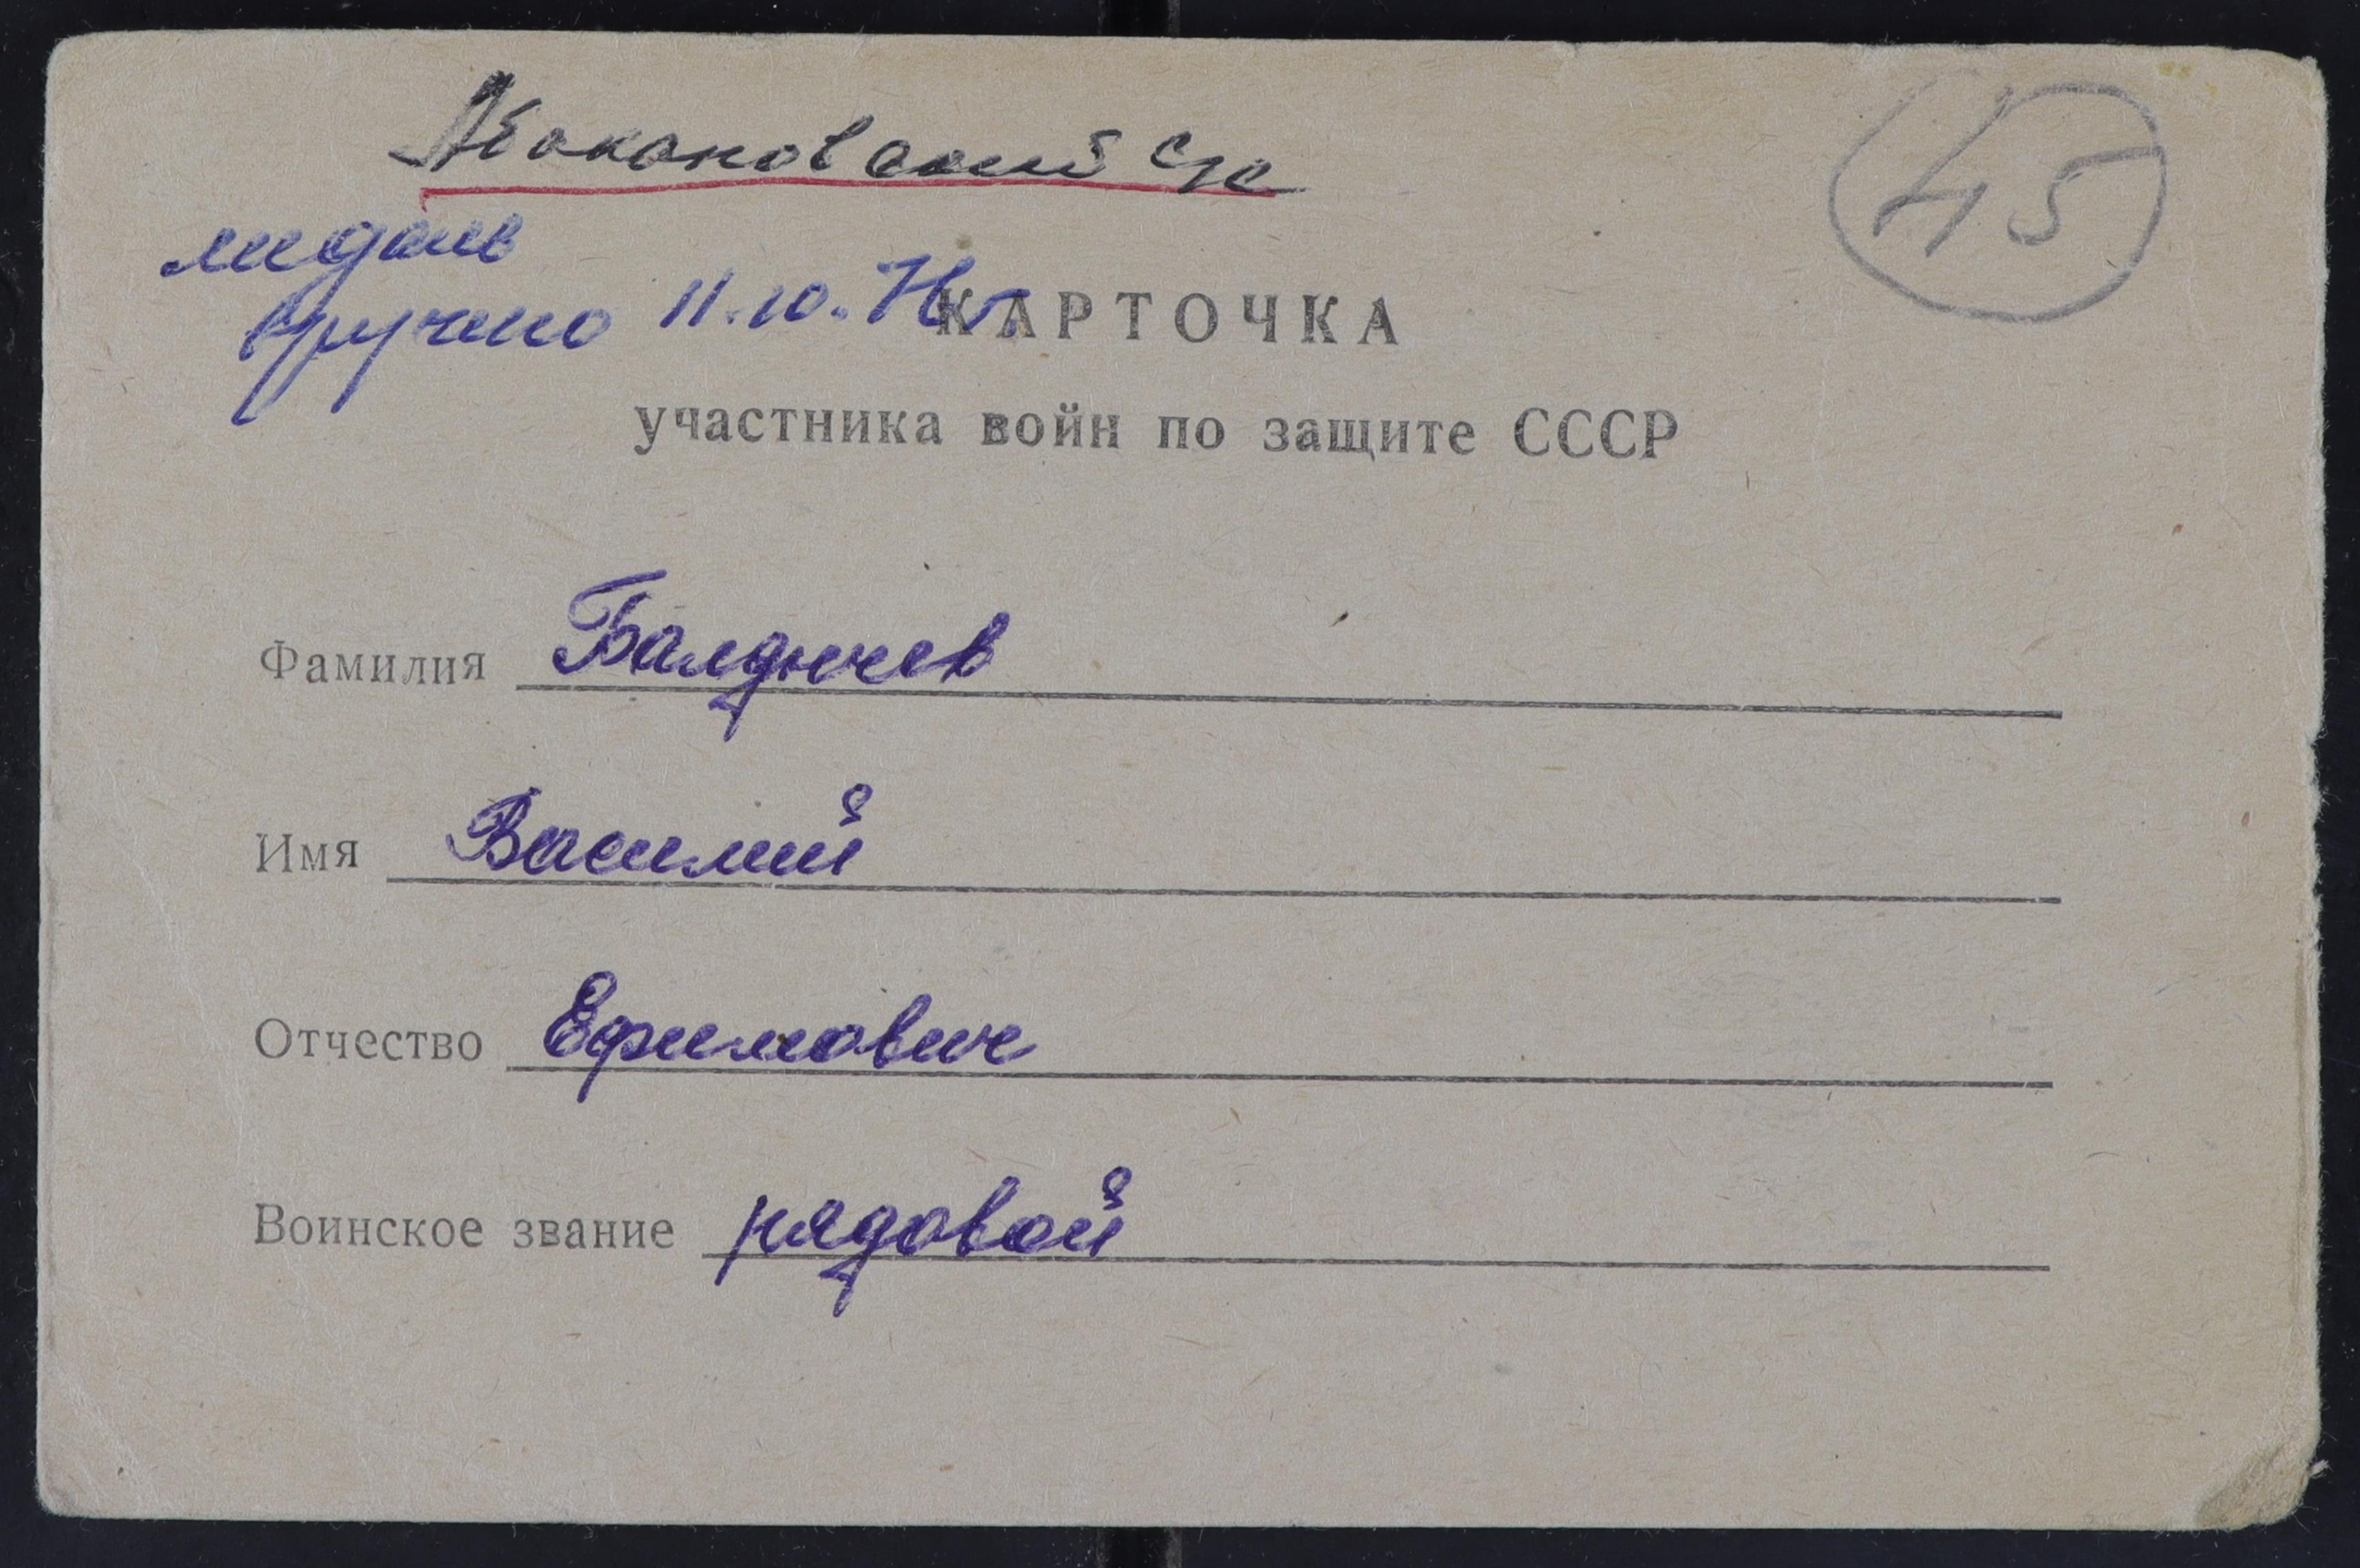 Абакановский с/с
45
медаль
вручено 11.10.76г
КАРТОЧКА
участника войн по защите СССР
Фамилия Балдычев
Имя Василий
Отчество Ефимович
Воинское звание рядовой